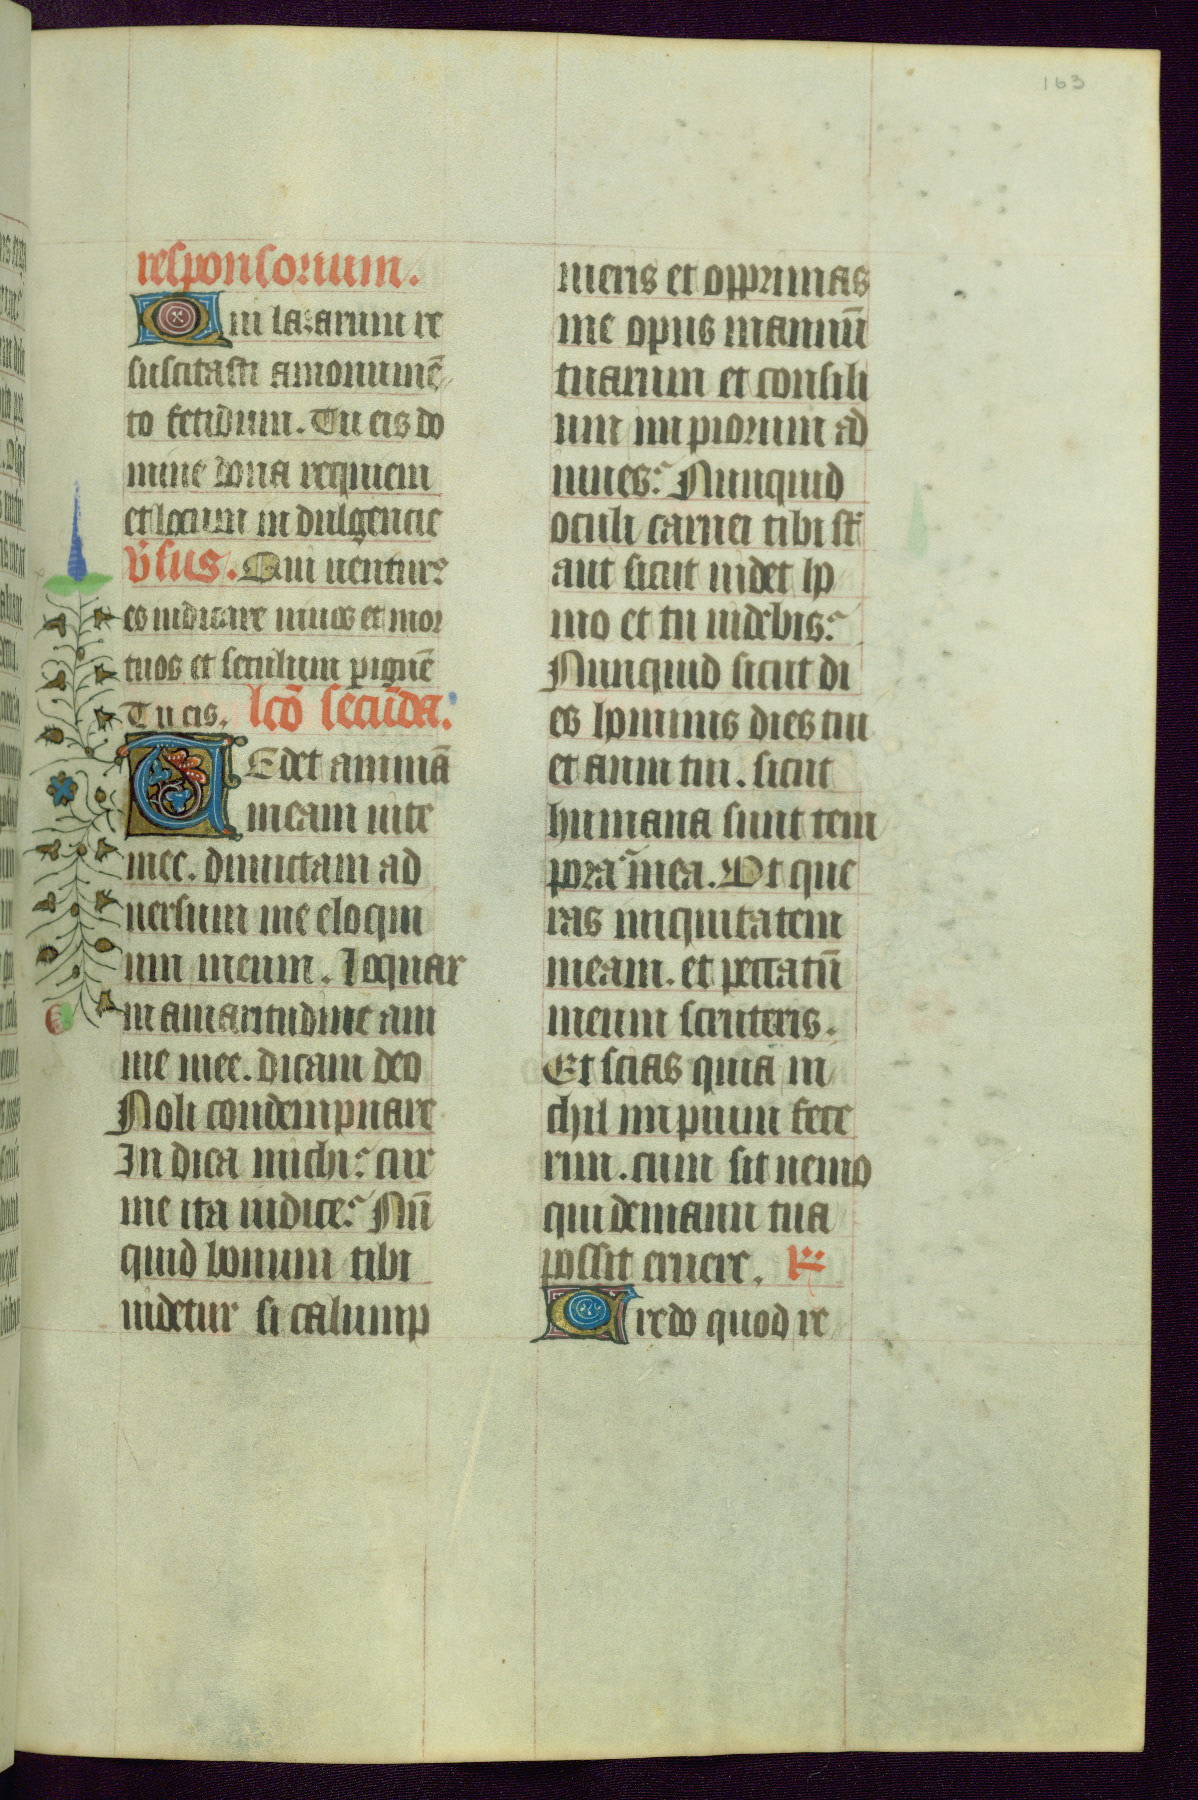 163
responsorium.
Qui lazarum re
suscitasti amonumē
to fetidum. Tu eis do
mine dona requiem
et locum in dulgencie
v̄sus. Qui uenturꝰ
es iudicare uiuos et mor
tuos et seculum p ignē
Tu eis. lcō secūda.
TEdet animā
meam uite
mee. dimittam ad
uersum me eloqui
um meum. Loquar
in amaritudine ani
me mee. dicam deo
Noli condempnare
In dica michi: cur
me ita iudice: Nū
quid bonum tibi
uidetur si calump
nieris et opprimas
me opus manuū
tuarum et consili
um im piorum ad
iuues: Nunquid
oculi carnei tibi st̄
aut sicut uidet ho
mo et tu uidebis:
Nunquid sicut di
es hominis dies tui
et anni tui. sicut
humana sunt tem
pora mea. Vt que
ras iniquitatem
meam. et peccatū
meum scruteris.
Et scias quia ni
chil im pium fece
rim. cum sit nemo
qui de manu tua
possit eruere. R
Credo quod re